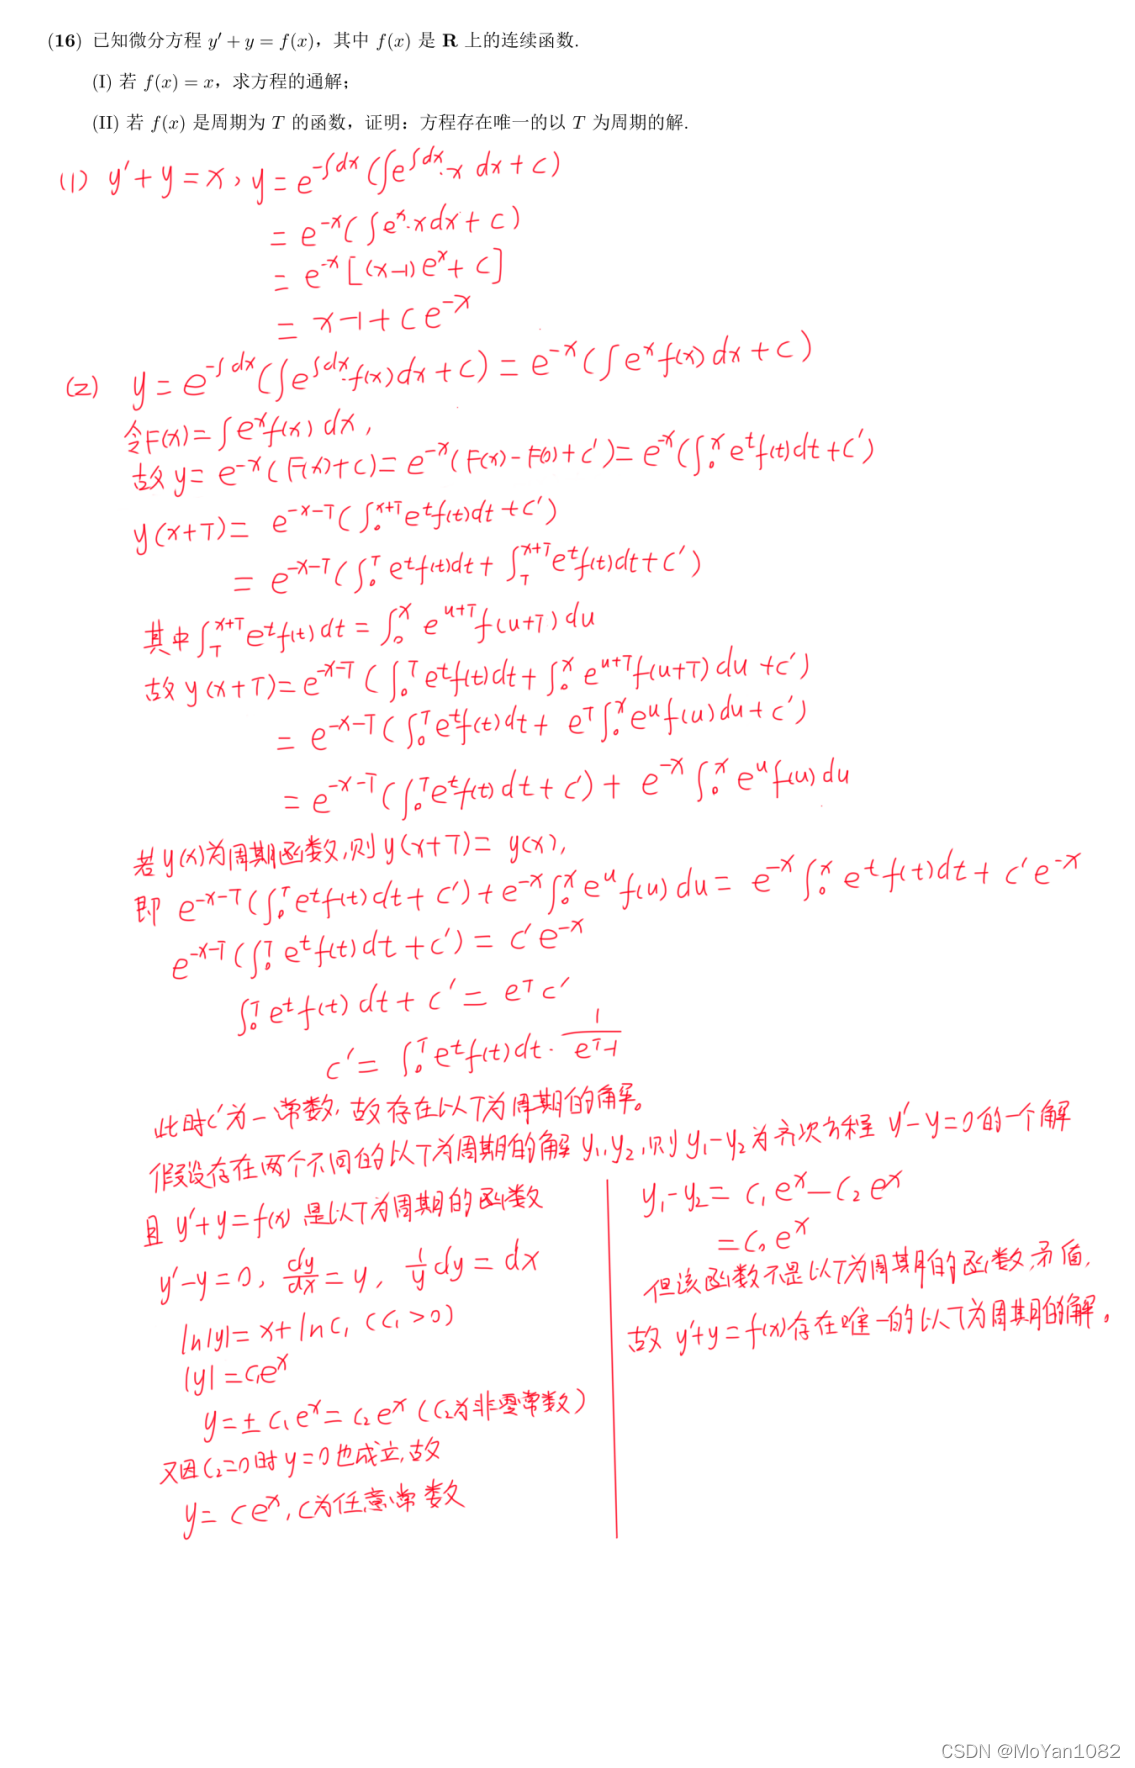 (16) 已知微分方程 y′ + y = f(x)，其中 f(x) 是 R 上的连续函数.
(I) 若 f(x) = x，求方程的通解；
(II) 若 f(x) 是周期为 T 的函数，证明：方程存在唯一的以 T 为周期的解.
(1) y′+y=x, y=e^{-∫dx}(∫e^{∫dx}·x dx+C)
=e^{-x}(∫e^x·xdx+C)
=e^{-x}[(x-1)e^x+C]
=x-1+Ce^{-x}
(2) y=e^{-∫dx}(∫e^{∫dx}·f(x)dx+C)=e^{-x}(∫e^x f(x)dx+C)
令F(x)=∫e^x f(x) dx,
故 y=e^{-x}(F(x)+C)=e^{-x}(F(x)-F(0)+C′)=e^{-x}(∫_0^x e^t f(t)dt+C′)
y(x+T)=e^{-x-T}(∫_0^{x+T} e^t f(t)dt+C′)
=e^{-x-T}(∫_0^T e^t f(t)dt+∫_T^{x+T} e^t f(t)dt+C′)
其中∫_T^{x+T} e^t f(t)dt=∫_0^x e^{u+T} f(u+T)du
故 y(x+T)=e^{-x-T}(∫_0^T e^t f(t)dt+∫_0^x e^{u+T} f(u+T)du+C′)
=e^{-x-T}(∫_0^T e^t f(t)dt+e^T∫_0^x e^u f(u)du+C′)
=e^{-x-T}(∫_0^T e^t f(t)dt+C′)+e^{-x}∫_0^x e^u f(u)du
若y(x)为周期函数,则y(x+T)=y(x),
即 e^{-x-T}(∫_0^T e^t f(t)dt+C′)+e^{-x}∫_0^x e^u f(u)du=e^{-x}∫_0^x e^t f(t)dt+C′e^{-x}
e^{-x-T}(∫_0^T e^t f(t)dt+C′)=C′e^{-x}
∫_0^T e^t f(t)dt+C′=e^T C′
C′=∫_0^T e^t f(t)dt·\frac{1}{e^T-1}
此时C′为一常数,故存在以T为周期的解。
假设存在两个不同的以T为周期的解 y₁,y₂,则y₁-y₂为齐次方程 y′-y=0的一个解
且 y′+y=f(x)是以T为周期的函数
y′-y=0, \frac{dy}{dx}=y, \frac{1}{y}dy=dx
ln|y|=x+lnC₁ (C₁>0)
|y|=C₁e^x
y=±C₁e^x=C₂e^x (C₂为非零常数)
又因C₂=0时y=0也成立,故
y=Ce^x,C为任意常数
y₁-y₂=C₁e^x-C₂e^x
=C₀e^x
但该函数不是以T为周期的函数,矛盾,
故 y′+y=f(x)存在唯一的以T为周期的解。
CSDN @MoYan1082